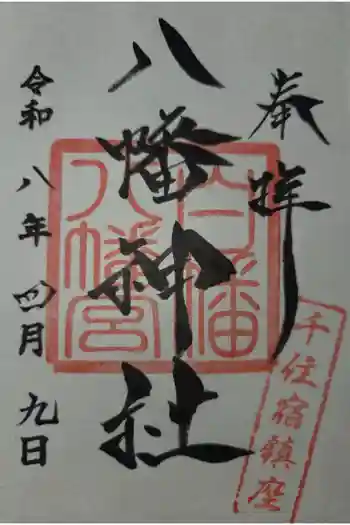 奉拝
八幡神社
令和八年四月九日
白幡八幡宮
千住宿鎮座